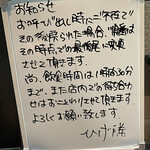 お知らせ
お呼び出し時にご不在で
その後戻られた場合、順番は
その時点での最後尾に変更
させて頂きます。
尚、飲食時間は1時間30分
まで、また店内での待ち合わ
せはおことわりさせて頂きます
よろしくお願い致します。